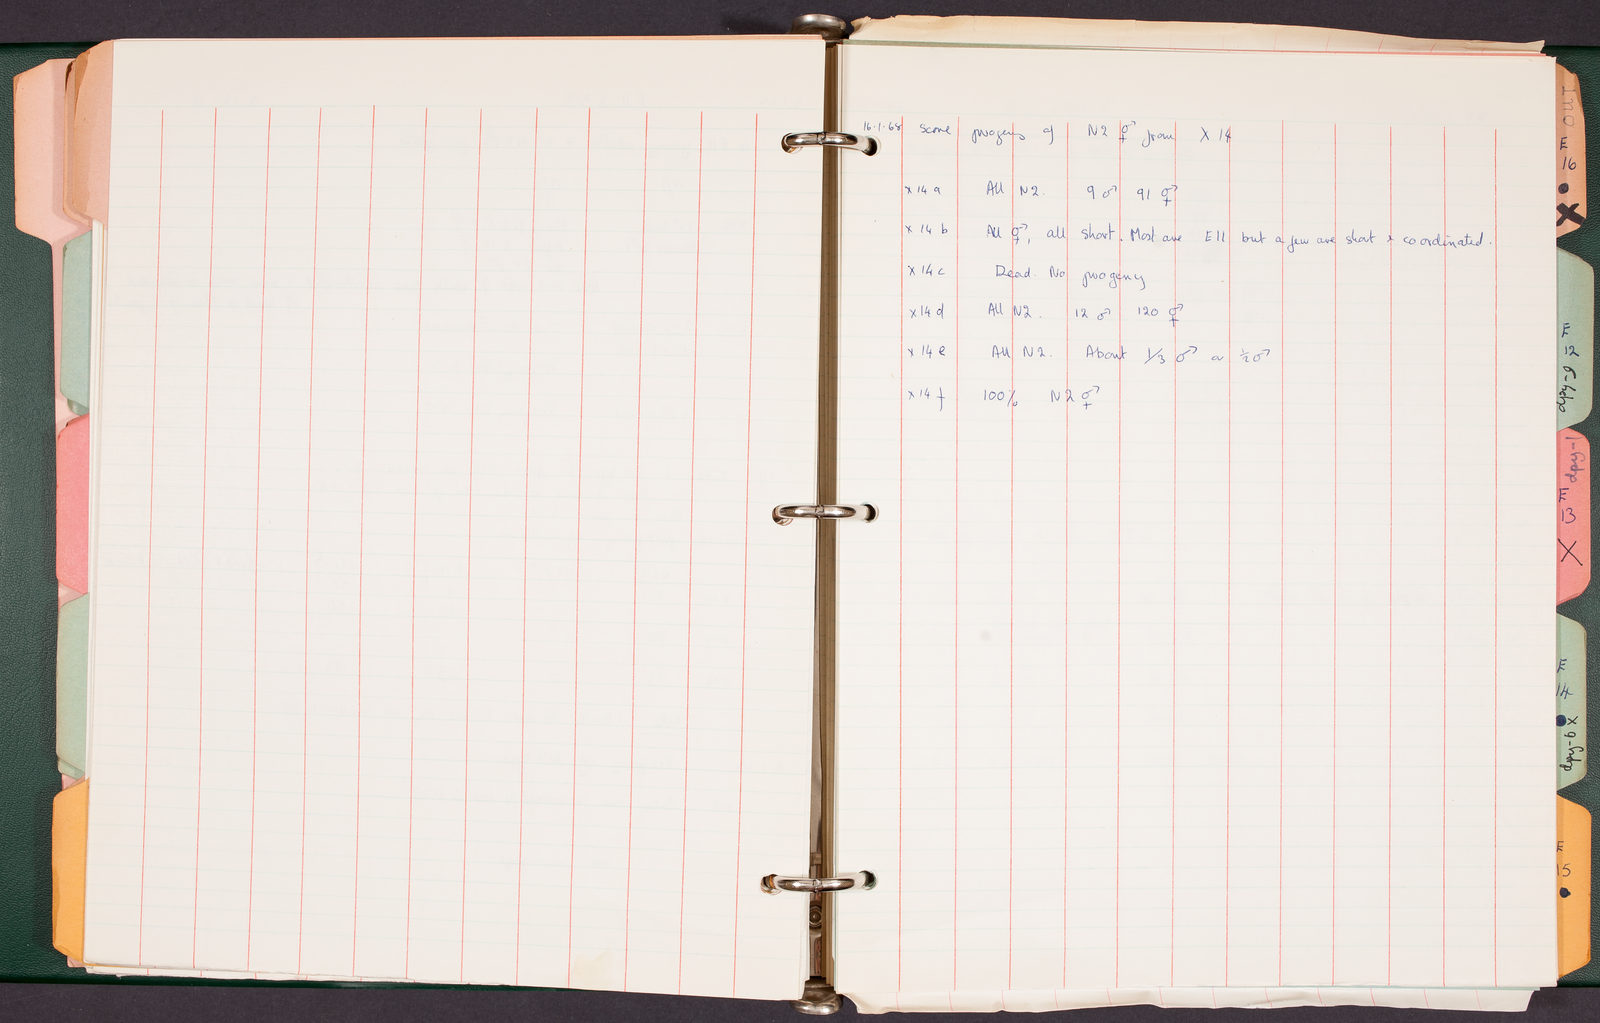 16.1.68 Score progeny of N2 ⚥ from X 14
X 14 a All N2. 9 ♂ 91 ⚥
X 14 b All ⚥, all short. Most are E11 but a few are short & coordinated.
X 14 c Dead. No progeny
X 14 d All N2. 12 ♂ 120 ⚥
X 14 e All N2. About 1/3 ♂ or 1/2 ♂
X 14 f 100% N2 ⚥
E
16
X
E
12
dpy-9
dpy-1
E
13
X
E
14
dpy-6 X
E
15